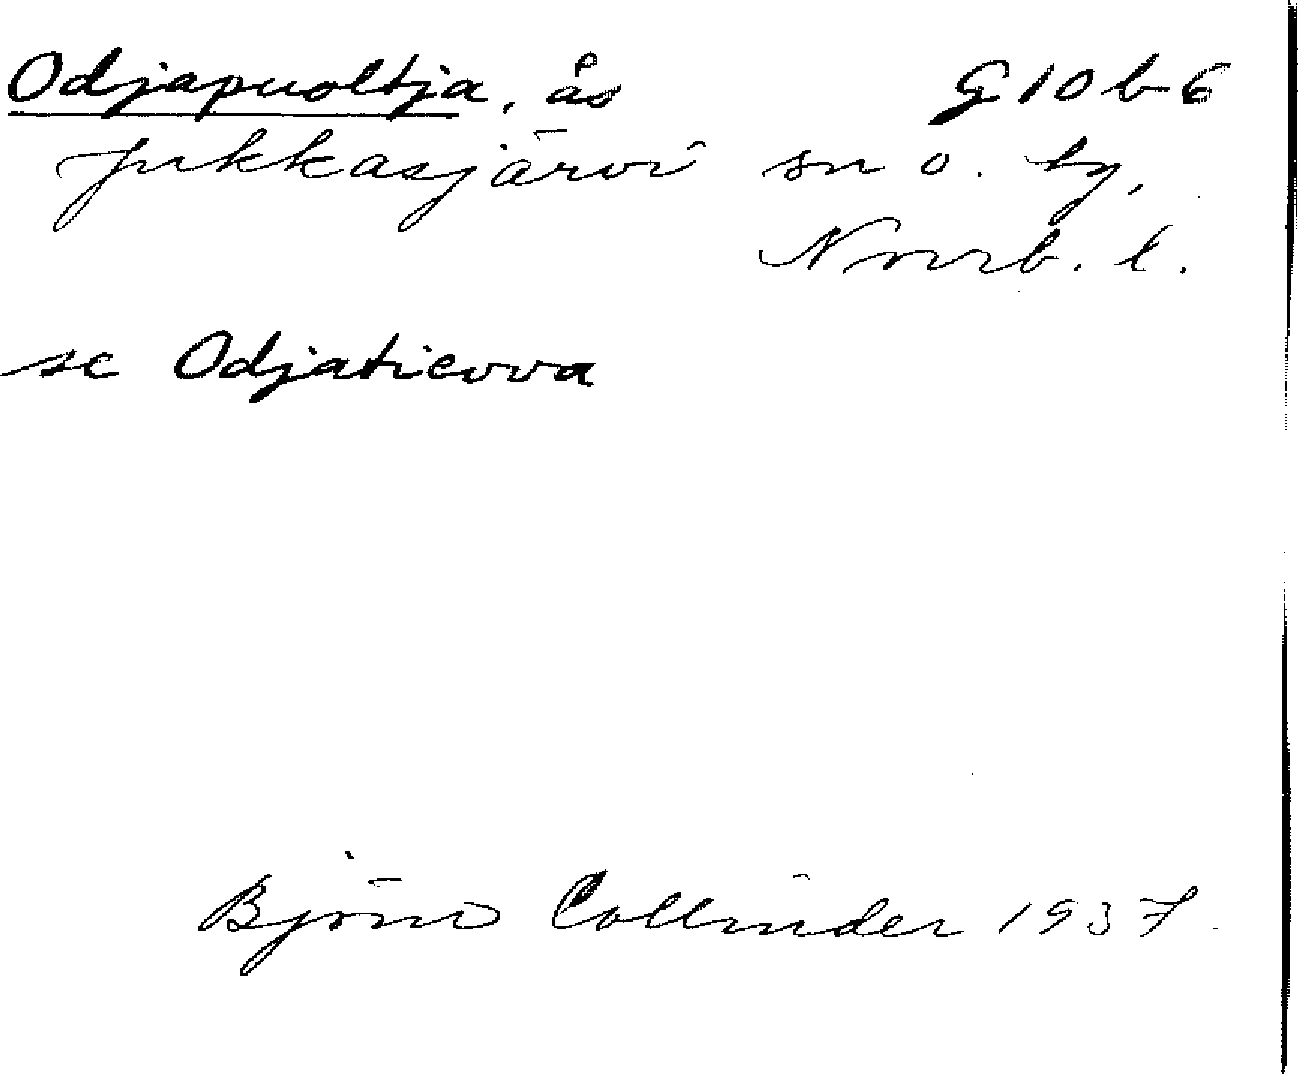 Odjapuoltja, ås G10b6
Jukkasjärvi sn o. by,
Norrb. l.
se Odjatievva
Björn Collinder 1937